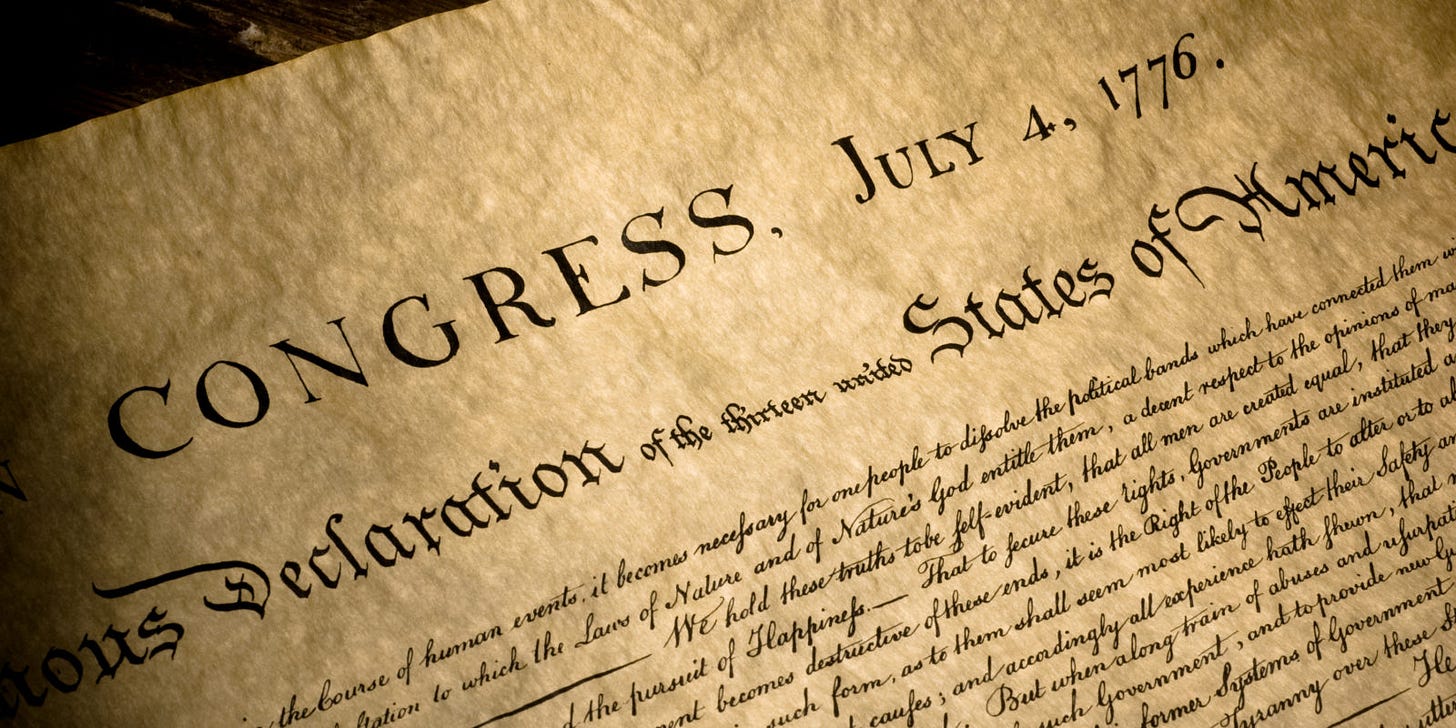 CONGRESS, JULY 4, 1776.
Declaration of the thirteen united States of Americ
the Course of human events, it becomes necessary for one people to dissolve the political bands which have connected them
to which the Laws of Nature and of Nature's God entitle them, a decent respect to the opinions of
We hold these truths to be self-evident, that all men are created equal, that they
the pursuit of Happiness.— That to secure these rights, Governments are instituted
becomes destructive of these ends, it is the Right of the People to alter or to
such form, as to them shall seem most likely to effect their Safety
causes; and accordingly all experience hath shewn, that
But when a long train of abuses and
such Government, and to provide new
former Systems of Government
Tyranny over these
He